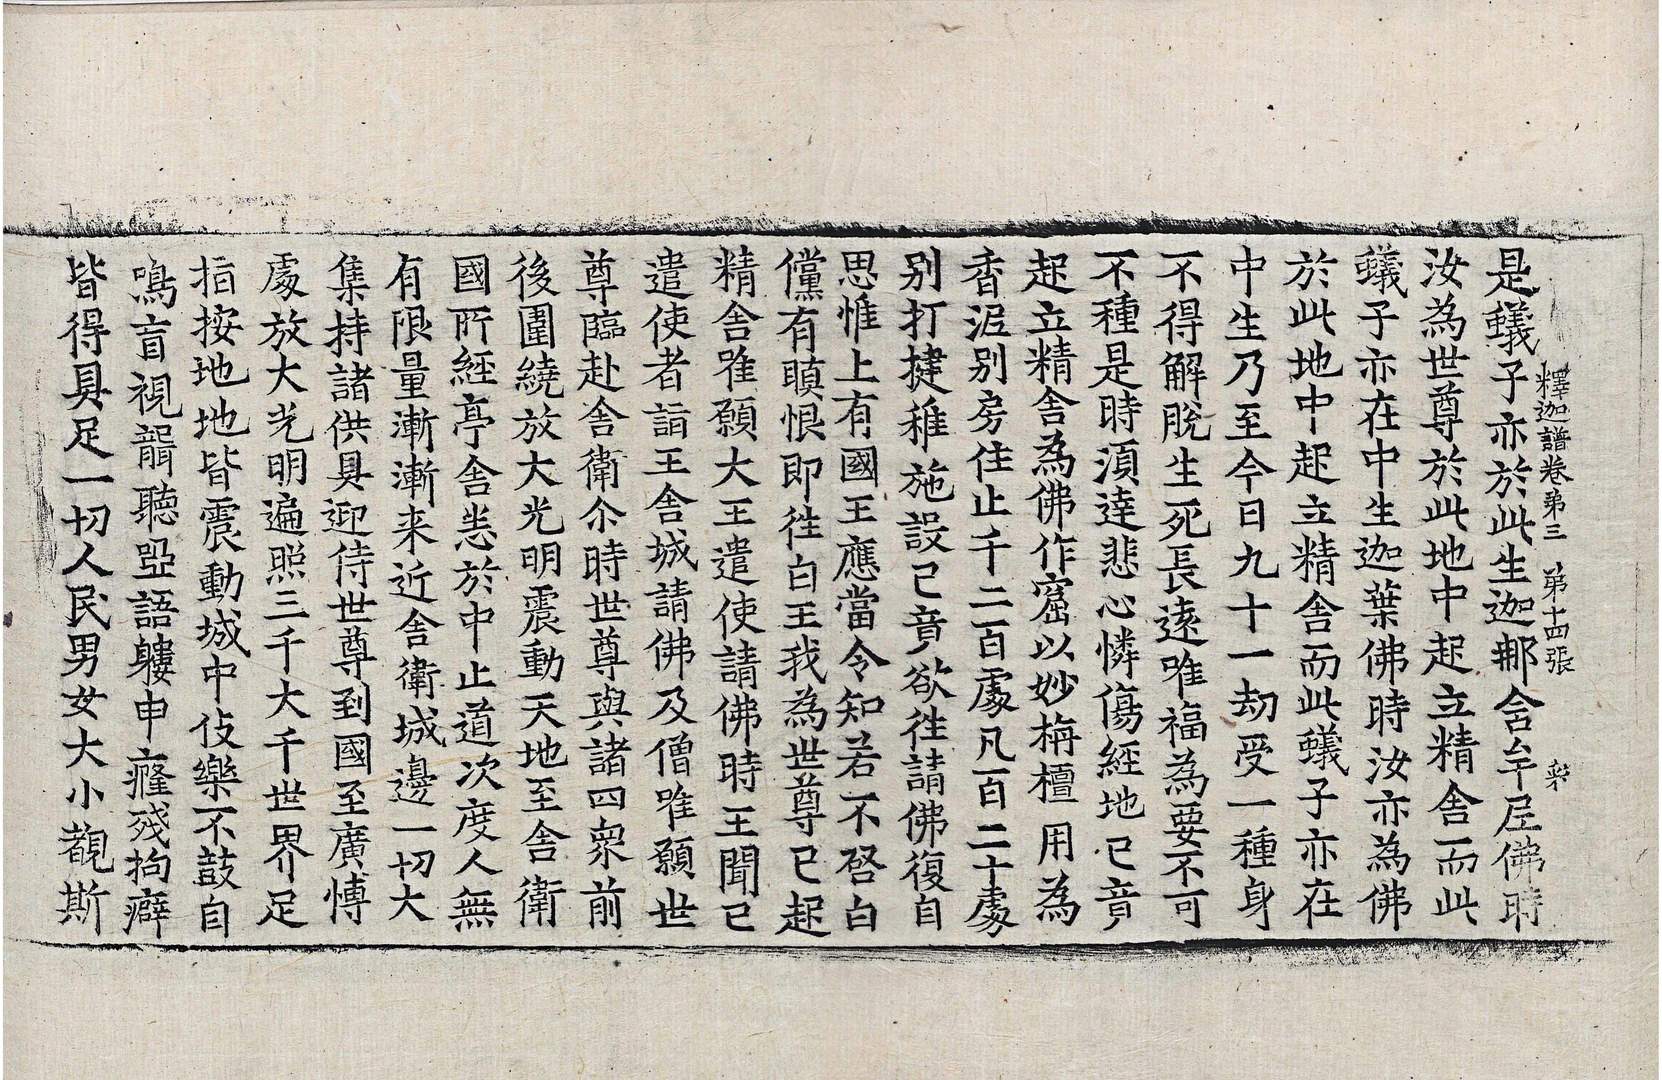 是蟻子亦於此生迦那含牟尼佛時
釋迦譜卷第三 第十四張
汝為世尊於此地中起立精舍而此
蟻子亦在中生迦葉佛時汝亦為佛
於此地中起立精舍而此蟻子亦在
中生乃至今日九十一劫受一種身
不得解脫生死長遠唯福為要不可
不種是時須達悲心憐傷經地已竟
起立精舍為佛作窟以妙栴檀用為
香泥别房住止千二百處凡百二十處
别打揵稚施設已竟欲往請佛復自
思惟上有國王應當令知若不啓白
儻有瞋恨即往白王我為世尊已起
精舍唯願大王遣使請佛時王聞已
遣使者詣王舍城請佛及僧唯願世
尊臨赴舍衛尒時世尊與諸四衆前
後圍繞放大光明震動天地至舍衛
國所經亭舍悉於中止道次度人無
有限量漸漸来近舍衛城邊一切大
集持諸供具迎侍世尊到國至廣愽
處放大光明遍照三千大千世界足
指按地地皆震動城中伎樂不鼓自
鳴盲視聾聽瘂語躶申癃殘拘癖
皆得具足一切人民男女大小覩斯